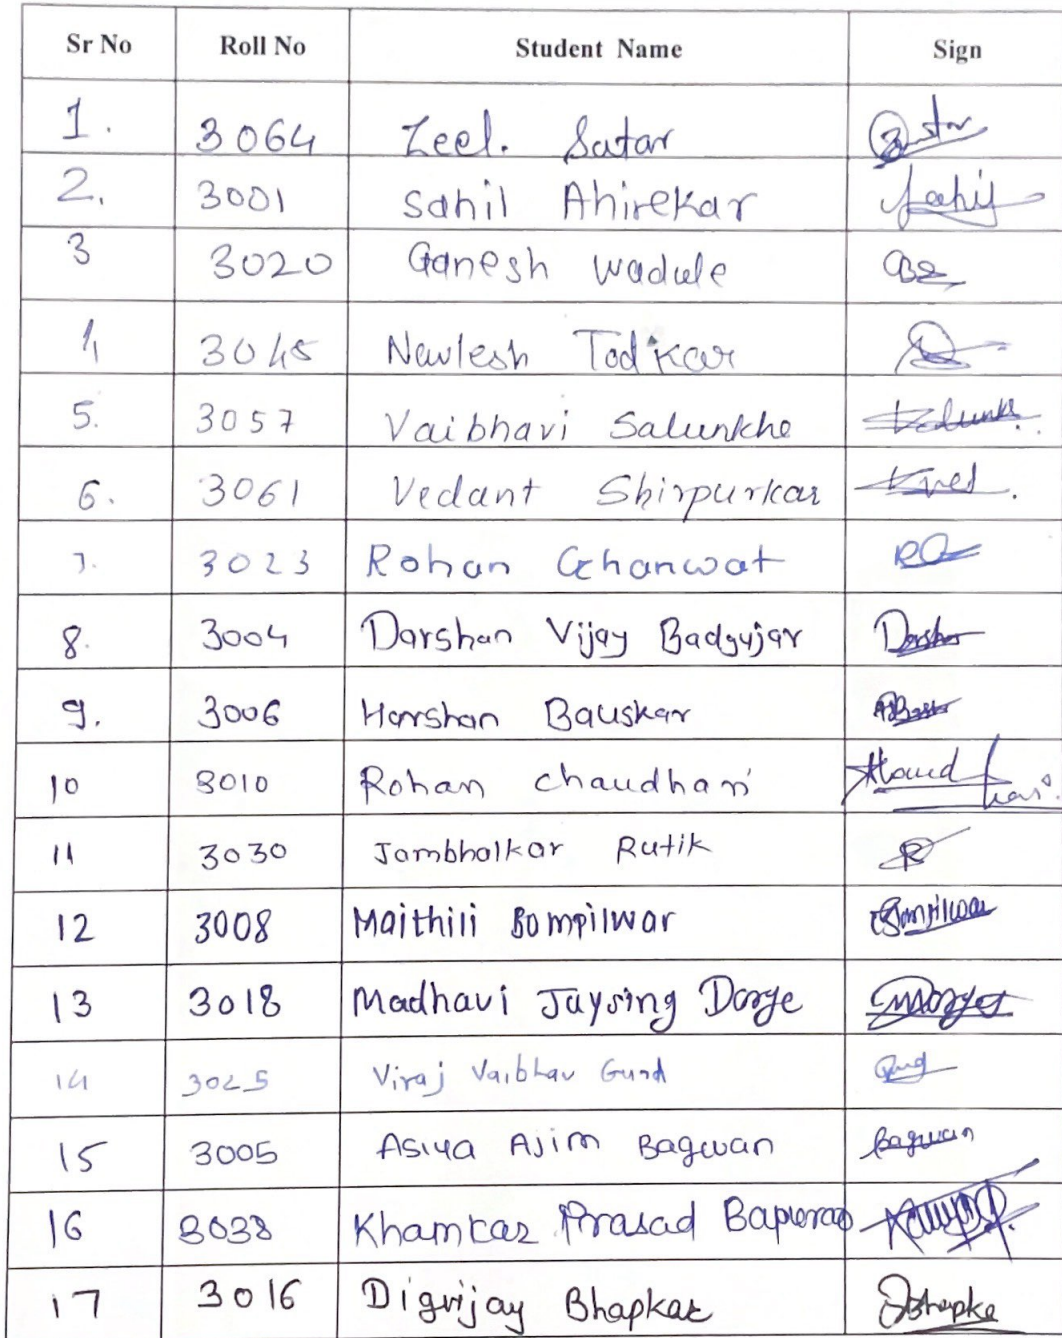 Sr No Roll No Student Name Sign
1. 3064 Zeel. Sutar
2. 3001 Sahil Ahirekar Sahil
3 3020 Ganesh Wadule
4 3045 Todkar
5. 3057 Vaibhavi Salunkhe Salunkhe
6. 3061 Vedant Shirpurkar Ved
7. 3023 Rohan Ghanwat
8. 3004 Darshan Vijay Badgujar Darshan
9. 3006 Harshan Bauskar
10 3010 Rohan Chaudhari
11 3030 Jambhalkar Rutik R
12 3008 Maithili Bompilwar Bompilwar
13 3018 Madhavi Jaysing Dorge
14 3025 Viraj Vaibhav Gund
15 3005 Asiya Ajim Bagwan Bagwan
16 3038 Khamkar Prasad Bapurao
17 3016 Digvijay Bhapkar